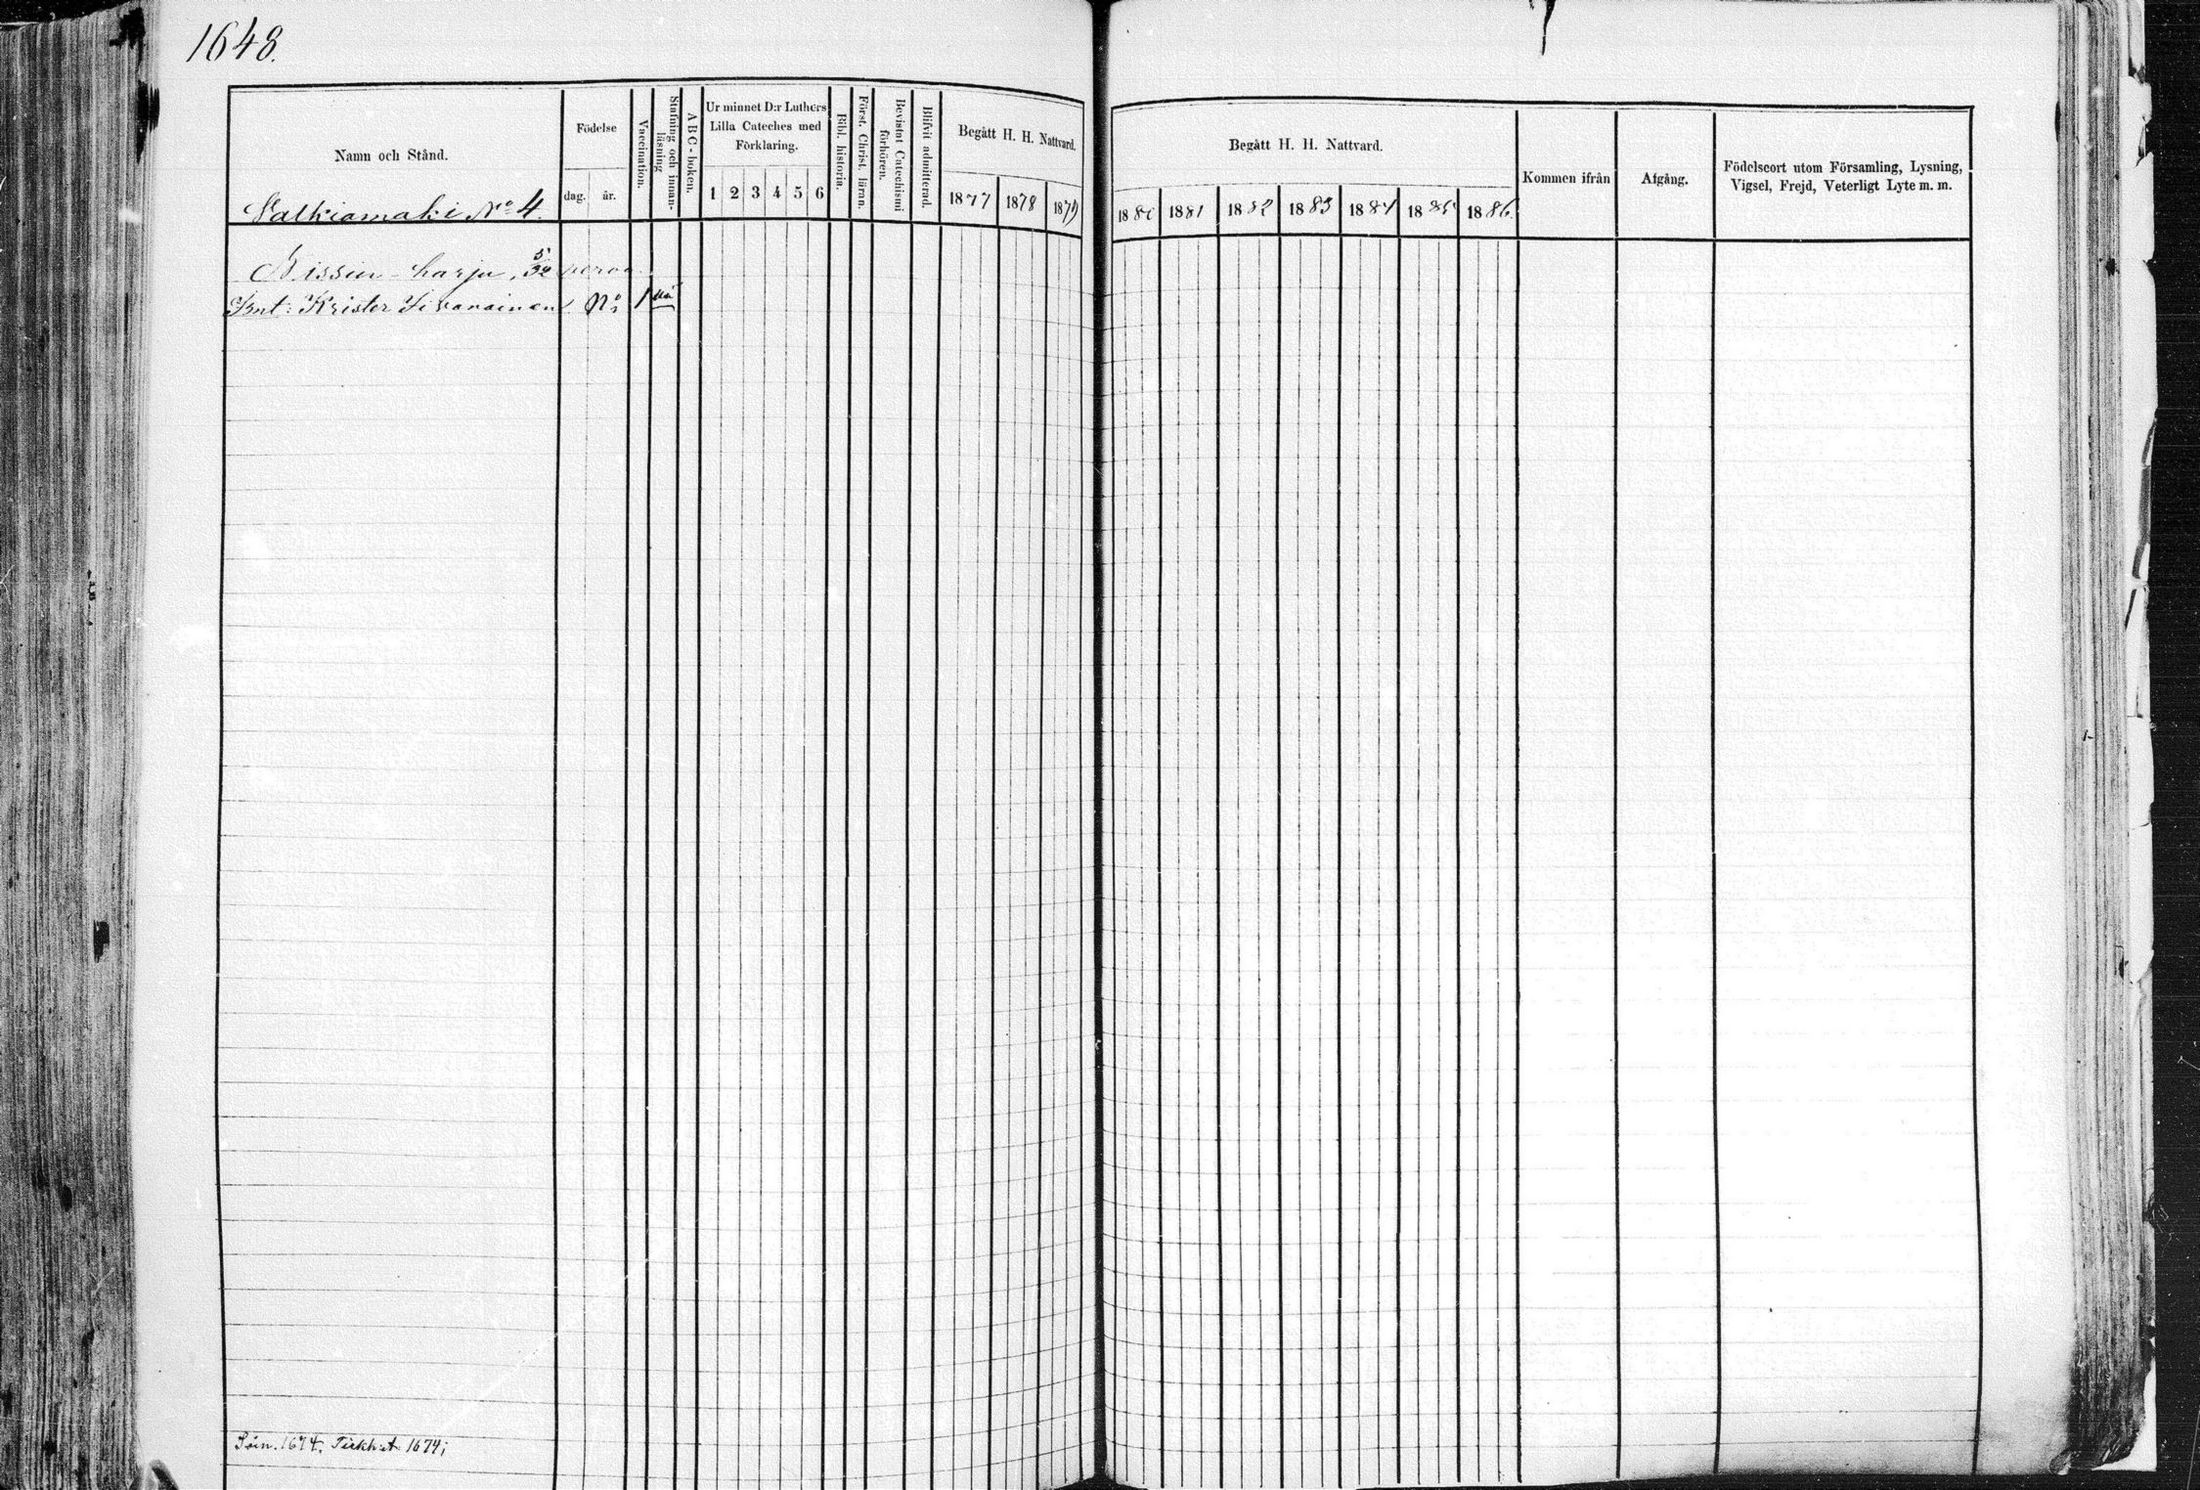 1648.
Namn och Stånd.
Födelse
dag. år.
Vaccination.
Stafning och innan-läsning
A B C - boken.
Ur minnet D:r Luthers
Lilla Cateches med
Förklaring.
1 2 3 4 5 6
Bibl. historia.
Först. Christ. läran.
Bevistat Catechismi förhören.
Blifvit admitterad.
Begått H. H. Nattvard.
1877 1878 1879
Begått H. H. Nattvard.
1880 1881 1882 1883 1884 1885 1886.
Kommen ifrån
Afgång.
Födelseort utom Församling, Lysning,
Vigsel, Frejd, Veterligt Lyte m. m.
No 4.
harju,
Krister No 1
1674. 1674;